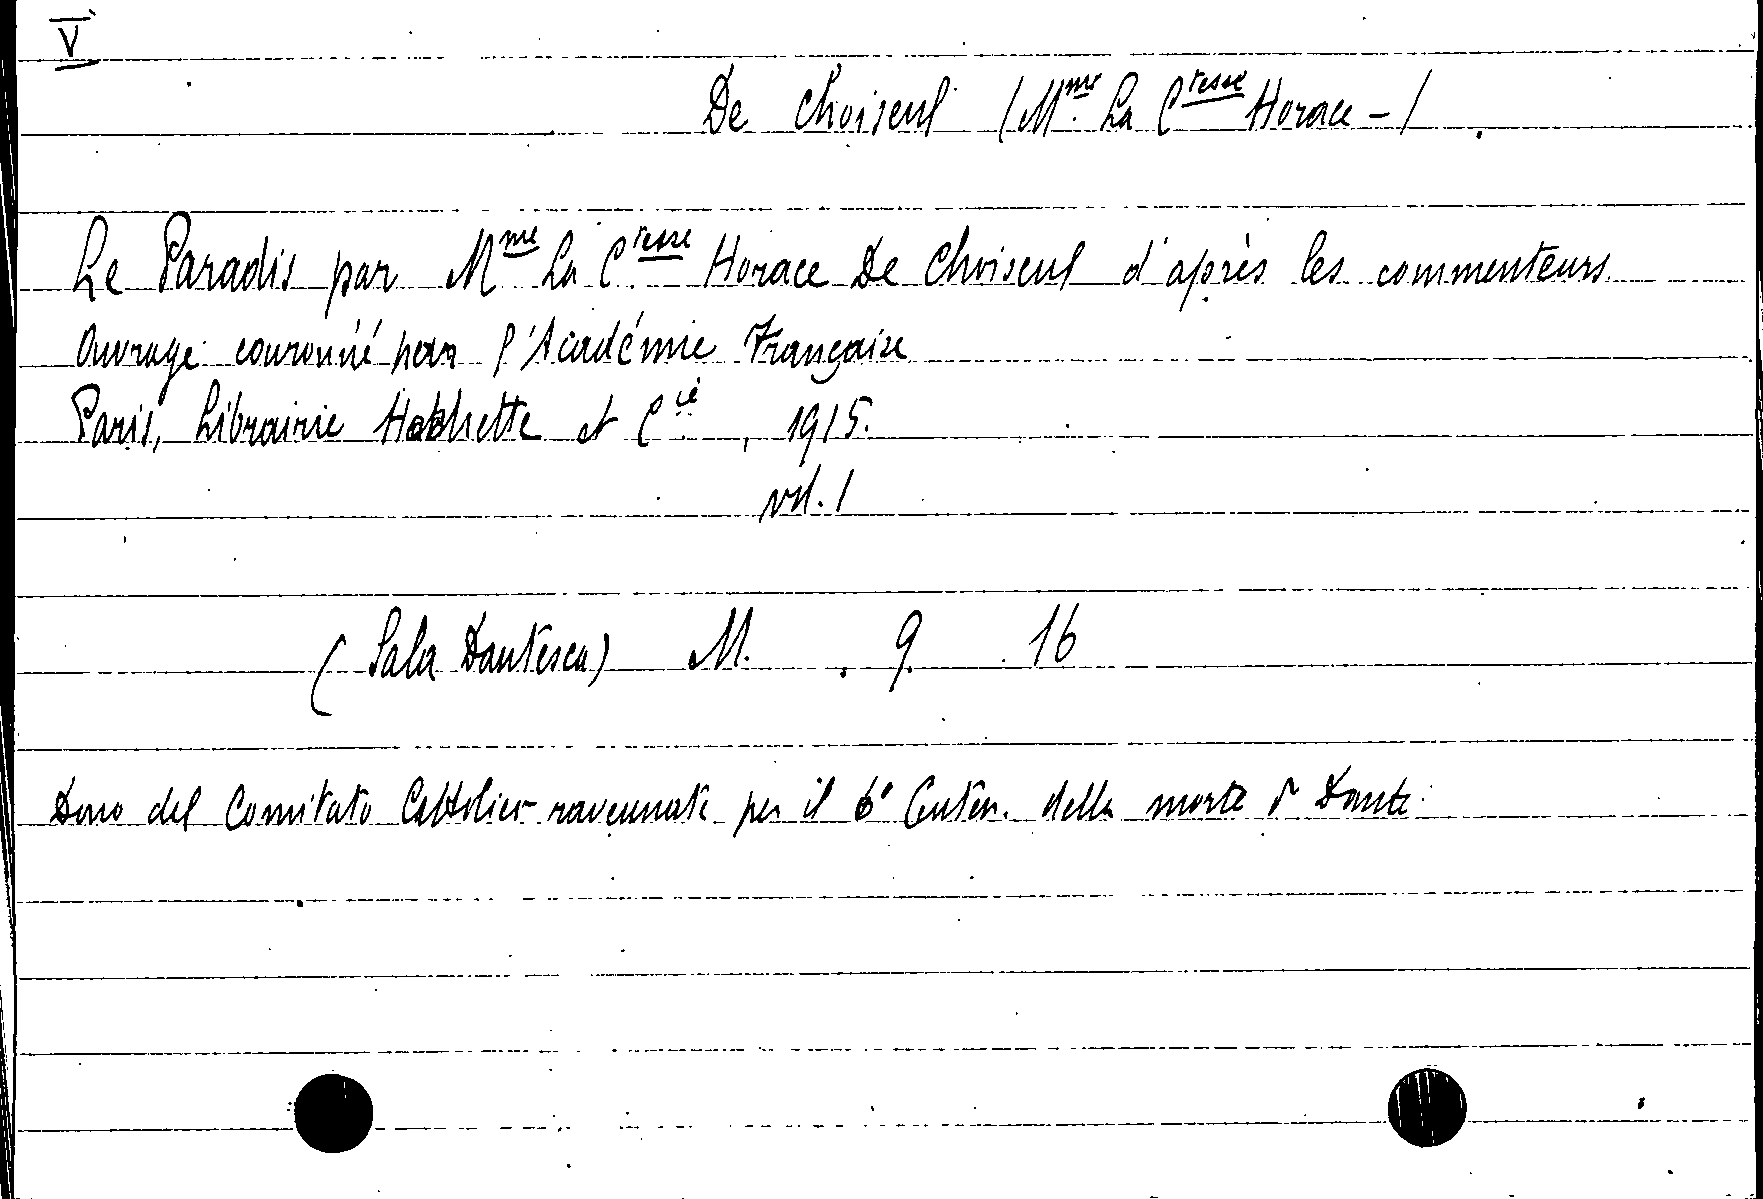 V
De Choiseul (Mme La Ctesse Horace -)
Le Paradis par Mme La Ctesse Horace De Choiseul d'après les commenteurs
Ouvrage couronné par l'Académie Française
Paris, Librairie Hachette et Cie, 1915.
vol. 1
(Sala Dantesca) M. . 9. 16
Dono del Comitato Cattolico ravennate per il 6° Centen. della morte di Dante